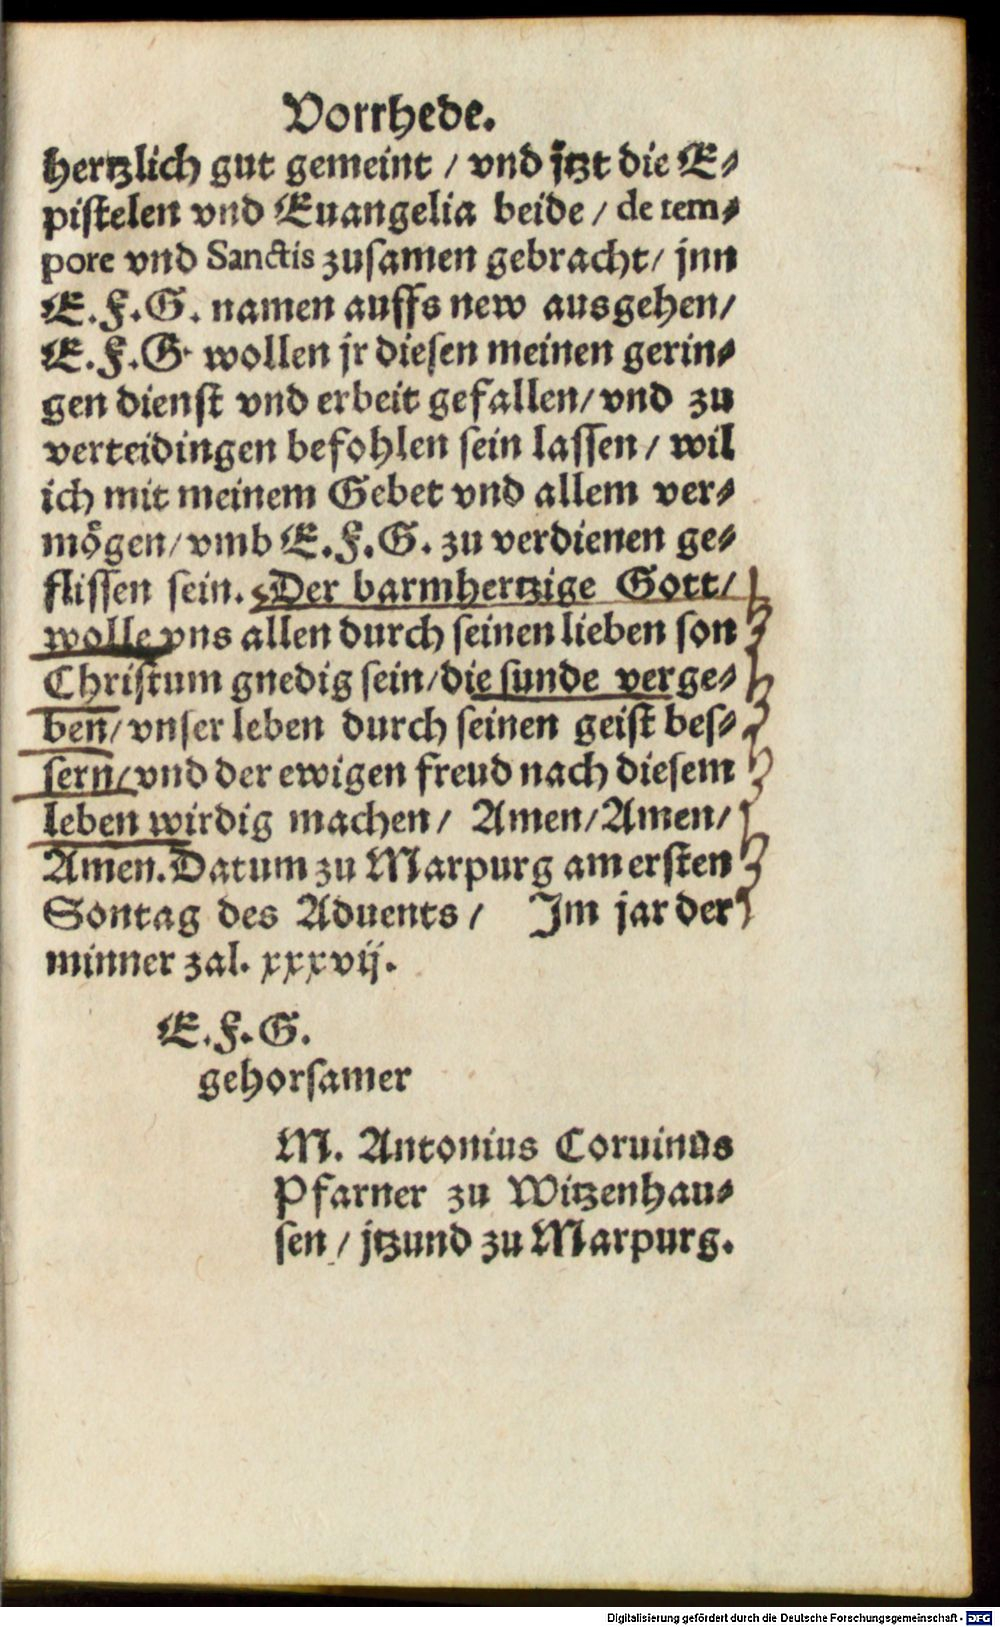 Vorrhede.
hertzlich gut gemeint / vnd itzt die E⸗
pistelen vnd Euangelia beide / de tem⸗
pore vnd Sanctis zusamen gebracht / jnn
E. F. G. namen auffs new ausgehen /
E. F. G. wollen jr diesen meinen gerin⸗
gen dienst vnd erbeit gefallen / vnd zu
verteidingen befohlen sein lassen / wil
ich mit meinem Gebet vnd allem ver⸗
mögen / vmb E. F. G. zu verdienen ge⸗
flissen sein. Der barmhertzige Gott /
wolle vns allen durch seinen lieben son
Christum gnedig sein / die sunde verge⸗
ben / vnser leben durch seinen geist bes⸗
sern / vnd der ewigen freud nach diesem
leben wirdig machen / Amen / Amen /
Amen. Datum zu Marpurg am ersten
Sontag des Aduents / Im jar der
minner zal. xxxvij.
E. F. G.
gehorsamer
M. Antonius Coruinus
Pfarner zu Witzenhau⸗
sen / jtzund zu Marpurg.
Digitalisierung gefördert durch die Deutsche Forschungsgemeinschaft - DFG